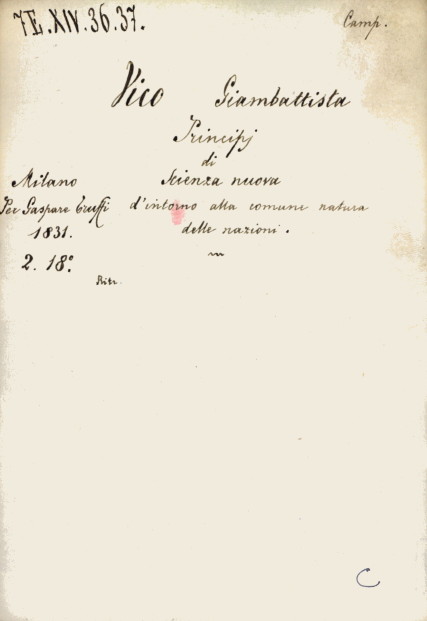 7E.XIV.36.37.
Camp.
Vico Giambattista
Principj
di
Scienza nuova
d'intorno alla comune natura
delle nazioni.
Milano
Per Gaspare Truffi
1831.
2. 18º.
Ritr.
C